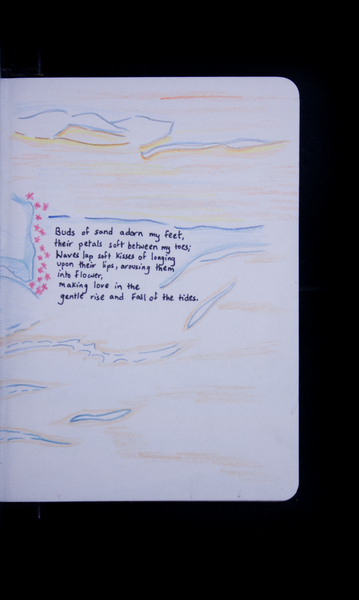 Buds of sand adorn my feet,
their petals soft between my toes;
Waves lap soft kisses of longing
upon their lips, arousing them
into flower,
making love in the
gentle rise and fall of the tides.